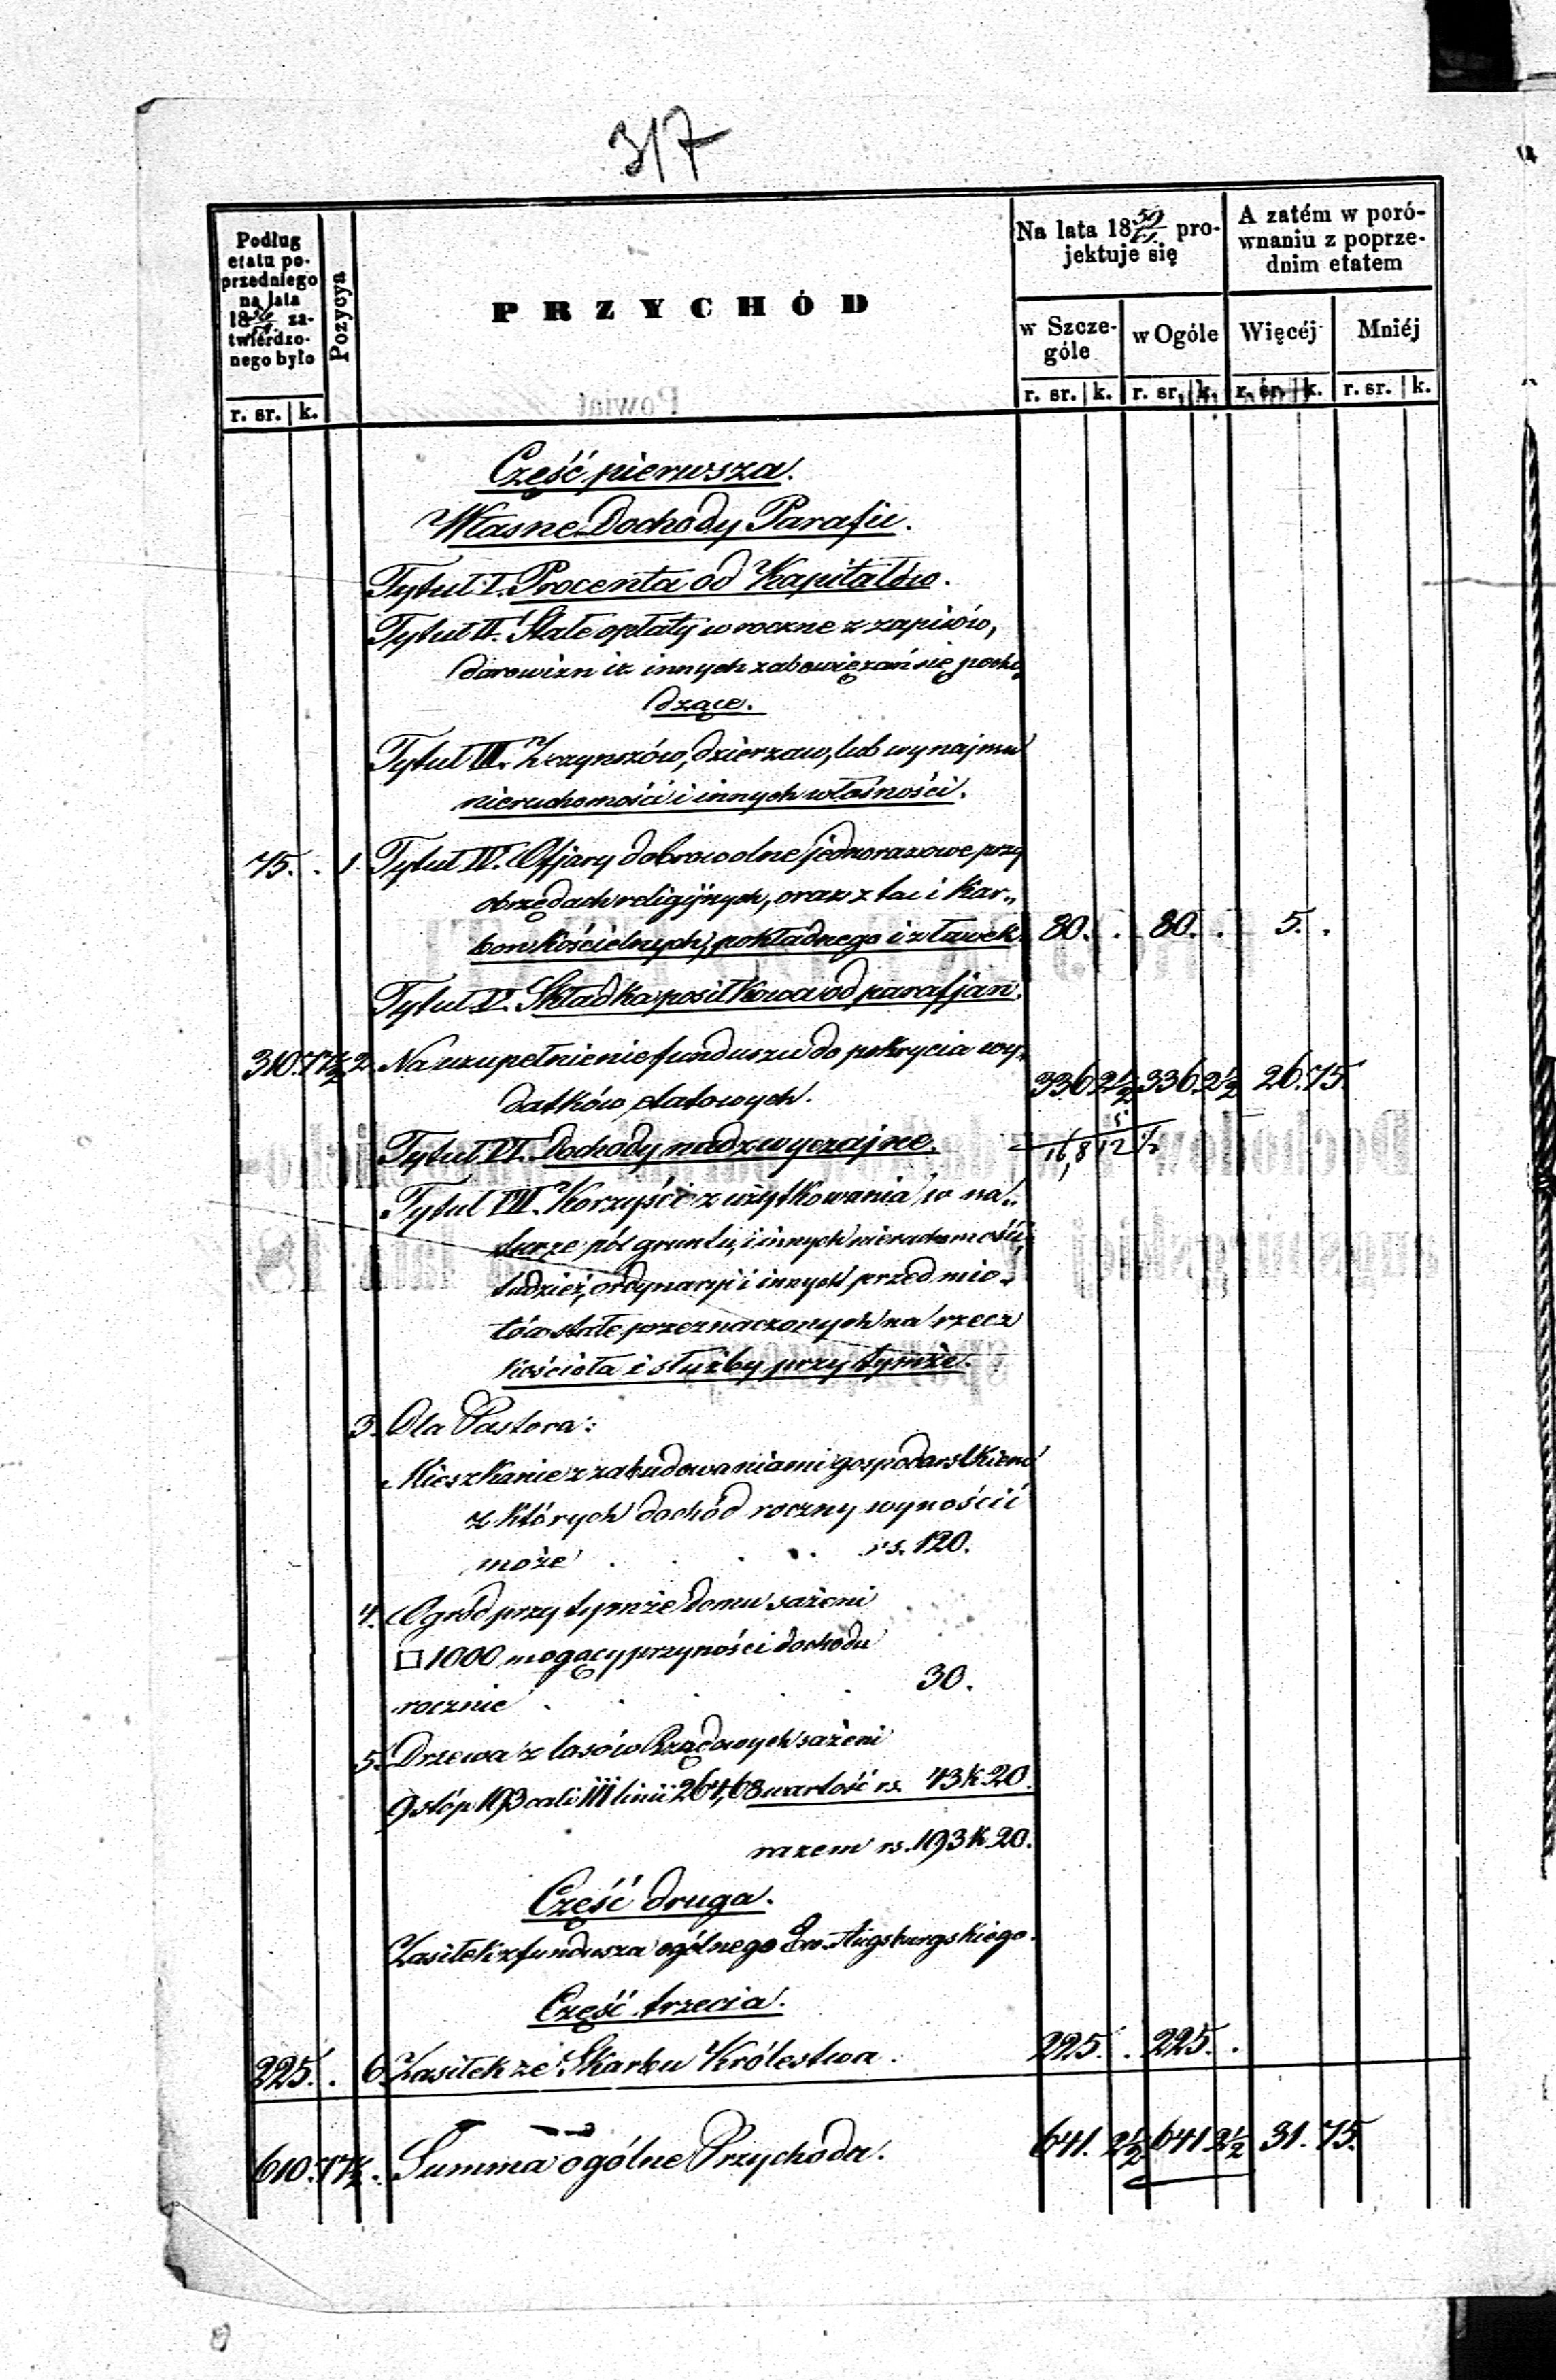 317
Podług etatu poprzedniego na lata 18 zatwierdzonego było
Pozycya
PRZYCHÓD
Na lata 18 59/61 projektuje się
A zatém w porównaniu z poprzednim etatem
w Szczególe
w Ogóle
Więcéj
Mniéj
r. sr. | k.
r. sr. | k. r. sr. | k. r. sr. | k. r. sr. | k.
Część pierwsza.
Własne Dochody Parafii.
Tytuł I. Procenta od Kapitałów.
Tytuł II. Stałe opłaty wroczne z zapisów,
darowizn i z innych zabowięzań się pocho
dzące.
Tytuł III. Z czynszów, dzierzaw, lub wynajmu
nieruchomości i innych własności.
75. . 1. Tytuł IV. Ofjary dobrowolne jednorazowe przy
obrzędach religijnych, oraz z tac i kar„
bon kościelnych, pokładnego i z ławek 80. . 80. . 5. .
Tytuł V. Składka posiłkowa od parafjan.
310. 77½ 2. Na uzupełnienie funduszu do pokrycia wy„
datków etatowych. 336 2½ 336 2½ 26. 75.
Tytuł VI. Dochody nadzwyczajne.
Tytuł VII. Korzyści z użytkowania w na„
turze pól gruntu, i innych nieruchomości,
tudzież, ordynaryi i innych przedmio„
tów stałe przeznaczonych na rzecz
kościoła i służby przy tymże.
3. Dla Pastora:
Mieszkanie z zabudowaniami gospodarskiemi
z których dochód roczny wynościć
może . . . . rs. 120.
4. Ogród przy tymże domu sażeni
□ 1000 mogący przyności dochodu
rocznie . . . . 30.
5. Drzewa z lasów Rządowych sażeni
9 stóp 193 cali III linii 264,68 wartość rs. 43 k 20.
razem rs. 193 k. 20.
Część druga.
Zasiłek z fundusza ogólnego Ew. Augsburgskiego.
Część trzecia.
225. . 6. Zasiłek ze Skarbu Królestwa. 225. . 225. .
610. 77½. Summa ogólne Przychodu. 641. 2½ 641 2½ 31. 75.